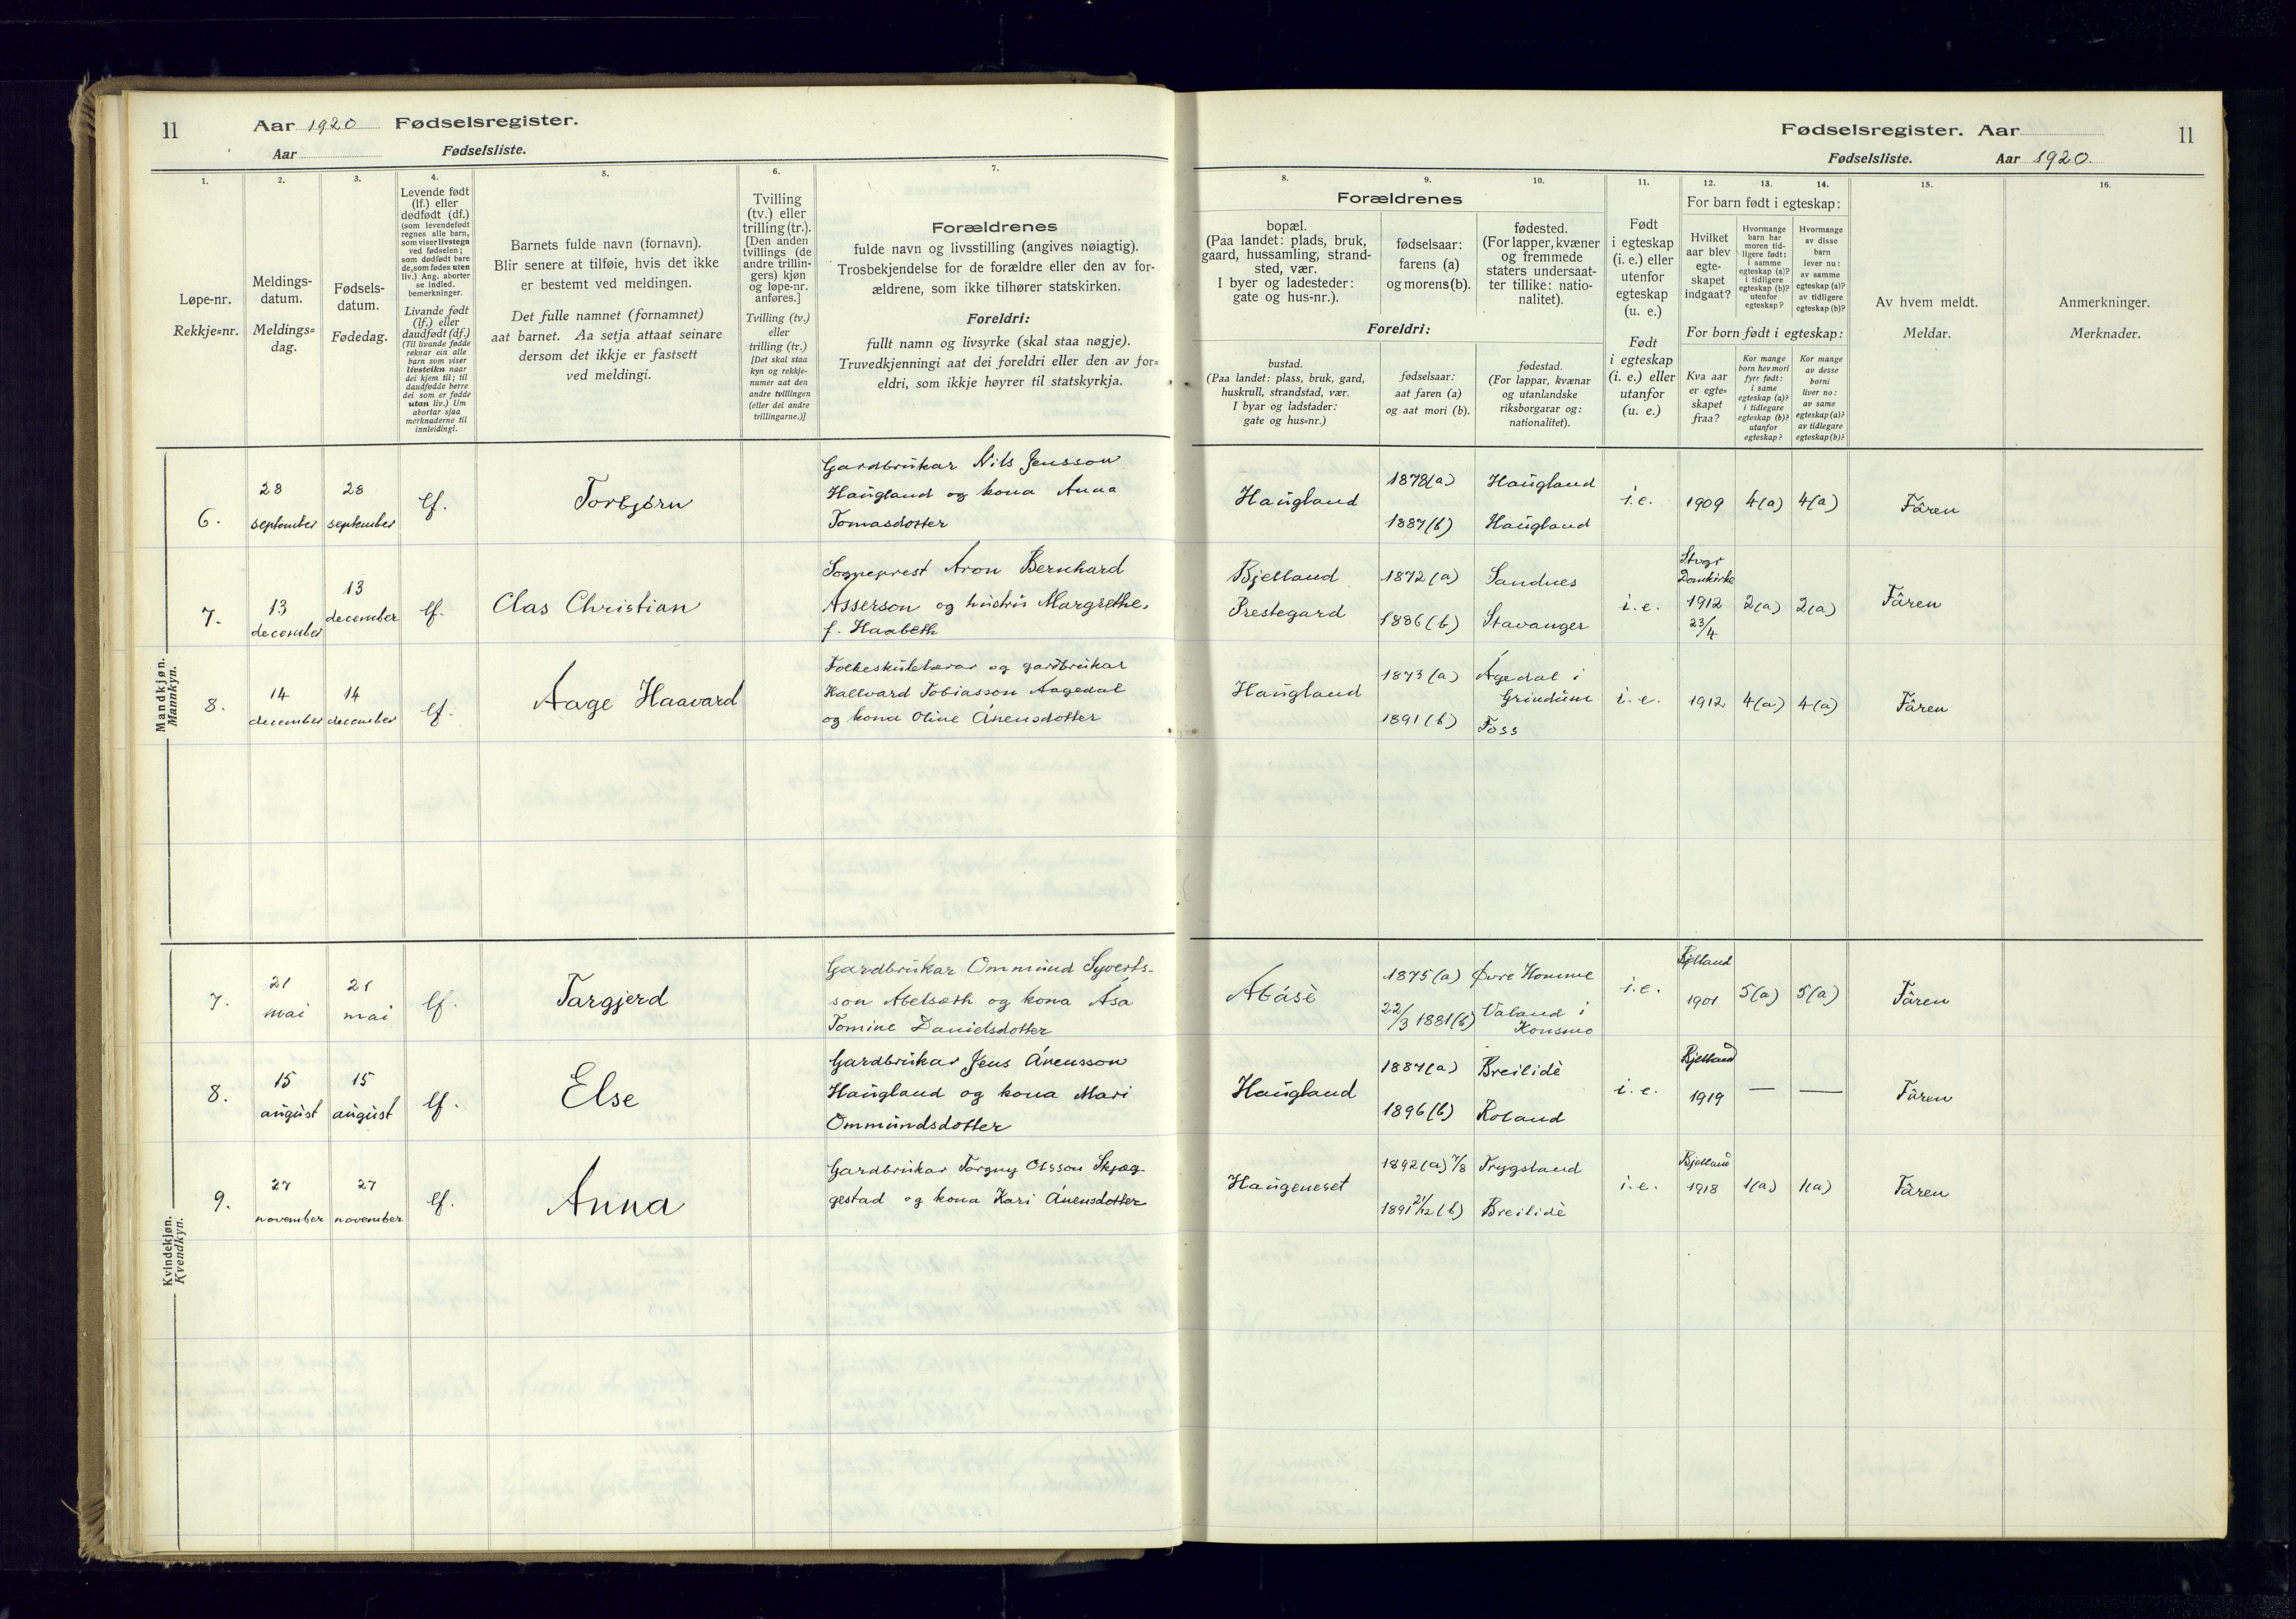 11
Aar 1920 Fødselsregister.
Aar Fødselsliste.
1.
2.
3.
4.
5.
6.
7.
Løpe-nr.
Rekkje=nr.
Meldings-
datum.
Meldings=
dag.
Fødsels-
datum.
Fødedag.
Levende født
(lf.) eller
dødfødt (df.)
(som levendefødt
regnes alle barn,
som viser livstegn
ved fødselen;
som dødfødt bare
de, som fødes uten
liv.) Ang. aborter
se indled.
bemerkninger.
Livande født
(lf.) eller
daudfødt (df.)
(Til livande fødde
reknar ein alle
barn som viser
livsteikn naar
dei kjem til; til
daudfødde berre
dei som er fødde
utan liv.) Um
abortar sjaa
merknaderne til
innleidingi.
Barnets fulde navn (fornavn).
Blir senere at tilføie, hvis det ikke
er bestemt ved meldingen.
Det fulle namnet (fornamnet)
aat barnet. Aa setja attaat seinare
dersom det ikkje er fastsett
ved meldingi.
Tvilling
(tv.) eller
trilling (tr.).
[Den anden
tvillings (de
andre trillin-
gers) kjøn
og løpe-nr.
anføres.]
Tvilling (tv.)
eller
trilling (tr.)
[Det skal staa
kyn og rekkje-
numer aat den
andre tvillingen
(eller dei andre
trillingarne.)]
Forældrenes
fulde navn og livsstilling (angives nøiagtig).
Trosbekjendelse for de forældre eller den av for-
ældrene, som ikke tilhører statskirken.
Foreldri:
fullt namn og livsyrke (skal staa nøgje).
Truvedkjenningi aat dei foreldri eller den av for=
eldri, som ikkje høyrer til statskyrkja.
Mandkjøn.
Mannkyn.
6.
28
september
28
september
lf.
Torbjørn
Gardbrukar Nils Jensson
Haugland og kona Anna
Tomasdotter
7.
13
december
13
december
lf.
Clas Christian
Sogneprest Aron Bernhard
Asserson og hustru Margrethe,
f. Haabeth
8.
14
december
14
december
lf.
Aage Haavard
Folkeskulelærar og gardbrukar
Hallvard Tobiasson Aagedal
og kona Oline Ånensdotter
Kvindekjøn.
Kvendkyn.
7.
21
mai
21
mai
lf.
Targjerd
Gardbrukar Ommund Syverts-
son Abelsæth og kona Åsa
Tomine Danielsdotter
8.
15
august
15
august
lf.
Else
Gardbrukar Jens Ånensson
Haugland og kona Mari
Ommundsdotter
9.
27
november
27
november
lf.
Anna
Gardbrukar Torgny Olsson Skjæg-
gestad og kona Kari Ånensdotter
Fødselsregister. Aar
11
Fødselsliste. Aar 1920.
8.
9.
10.
11.
12.
13.
14.
15.
16.
Forældrenes
bopæl.
(Paa landet: plads, bruk,
gaard, hussamling, strand-
sted, vær.
I byer og ladesteder:
gate og hus-nr.).
fødselsaar:
farens (a)
og morens (b).
fødested.
(For lapper, kvæner
og fremmede
staters undersaat-
ter tillike: natio-
nalitet).
Foreldri:
bustad.
(Paa landet: plass, bruk, gard,
huskrull, strandstad, vær.
I byar og ladstader:
gate og hus=nr.)
fødselsaar:
aat faren (a)
og aat mori (b).
fødestad.
(For lappar, kvænar
og utanlandske
riksborgarar og:
nationalitet).
Født
i egteskap
(i. e.) eller
utenfor
egteskap
(u. e.)
Født
i egteskap
(i. e.) eller
utanfor
(u. e.)
For barn født i egteskap:
Hvilket
aar blev
egte-
skapet
indgaat?
Hvormange
barn har
moren tid-
ligere født:
i samme
egteskap (a)?
i tidligere
egteskap (b)?
utenfor
egteskap?
Hvormange
av disse
barn
lever nu:
av samme
egteskap (a)?
av tidligere
egteskap (b)?
For born født i egteskap:
Kva aar
er egte=
skapet
fraa?
Kor mange
born hev mori
fyrr født:
i same
egteskap (a)?
i tidlegare
egteskap (b)?
utanfor
egteskap?
Kor mange
av desse
borni
liver no:
av same
egteskap (a)?
av tidlegare
egteskap (b)?
Av hvem meldt.
Meldar.
Anmerkninger.
Merknader.
Haugland
1878 (a)
1887 (b)
Haugland
Haugland
i.e.
1909
4(a)
4(a)
Fåren
Bjelland
Prestegard
1872 (a)
1886 (b)
Sandnes
Stavanger
i.e.
Stvgr
Domkirke
1912
23/4
2(a)
2(a)
Fåren
Haugland
1873 (a)
1891 (b)
Ågedal i
Grindum
Foss
i.e.
1912
4(a)
4(a)
Fåren
Abåsè
1875 (a)
22/3 1881 (b)
Øvre Homme
Valand i
Konsmo
i.e.
Bjelland
1901
5(a)
5(a)
Fåren
Haugland
1887 (a)
1896 (b)
Breilidè
Roland
i.e.
Bjelland
1919
—
—
Fåren
Haugeneset
1892 (a) 7/8
1891 21/12 (b)
Trygsland
Breilidè
i.e.
Bjelland
1918
1(a)
1(a)
Fåren